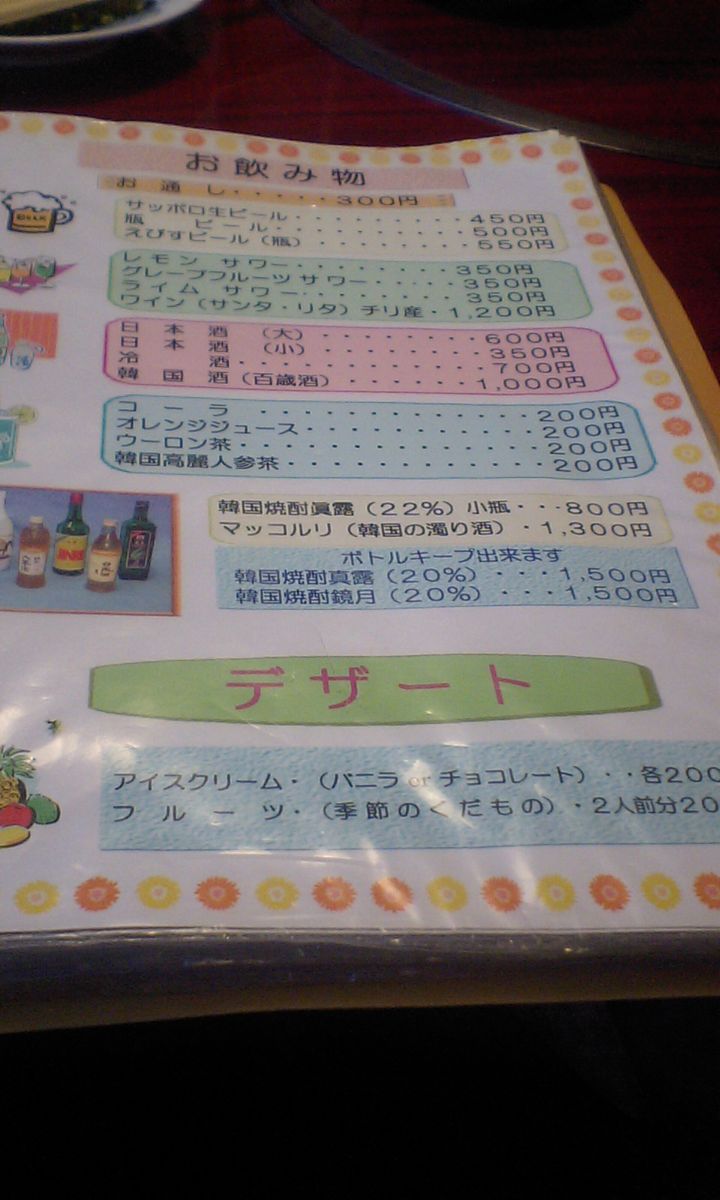 お飲み物
お 通 し・・・・・300円
サッポロ生ビール・・・・・・・・・450円
瓶 ビール・・・・・・・・・・500円
えびすビール（瓶）・・・・・・・・550円
レモン サワー・・・・・・・・350円
グレープフルーツ サワー・・・・・350円
ライム サワー・・・・・・・・350円
ワイン（サンタ・リタ）チリ産・1,200円
日 本 酒 （大）・・・・・・・・600円
日 本 酒 （小）・・・・・・・・350円
冷 酒・・・・・・・・・・・700円
韓 国 酒（百歳酒）・・・・・・・1,000円
コ ー ラ ・・・・・・・・・・・・200円
オレンジジュース・・・・・・・・・・200円
ウーロン茶・・・・・・・・・・・・・200円
韓国高麗人参茶・・・・・・・・・・・200円
韓国焼酎眞露（22%）小瓶・・・800円
マッコルリ（韓国の濁り酒）・1,300円
ボトルキープ出来ます
韓国焼酎真露（20%）・・・1,500円
韓国焼酎鏡月（20%）・・・1,500円
デザート
アイスクリーム・（バニラ or チョコレート）・・各200
フ ル ー ツ・（季節のくだもの）・2人前分20